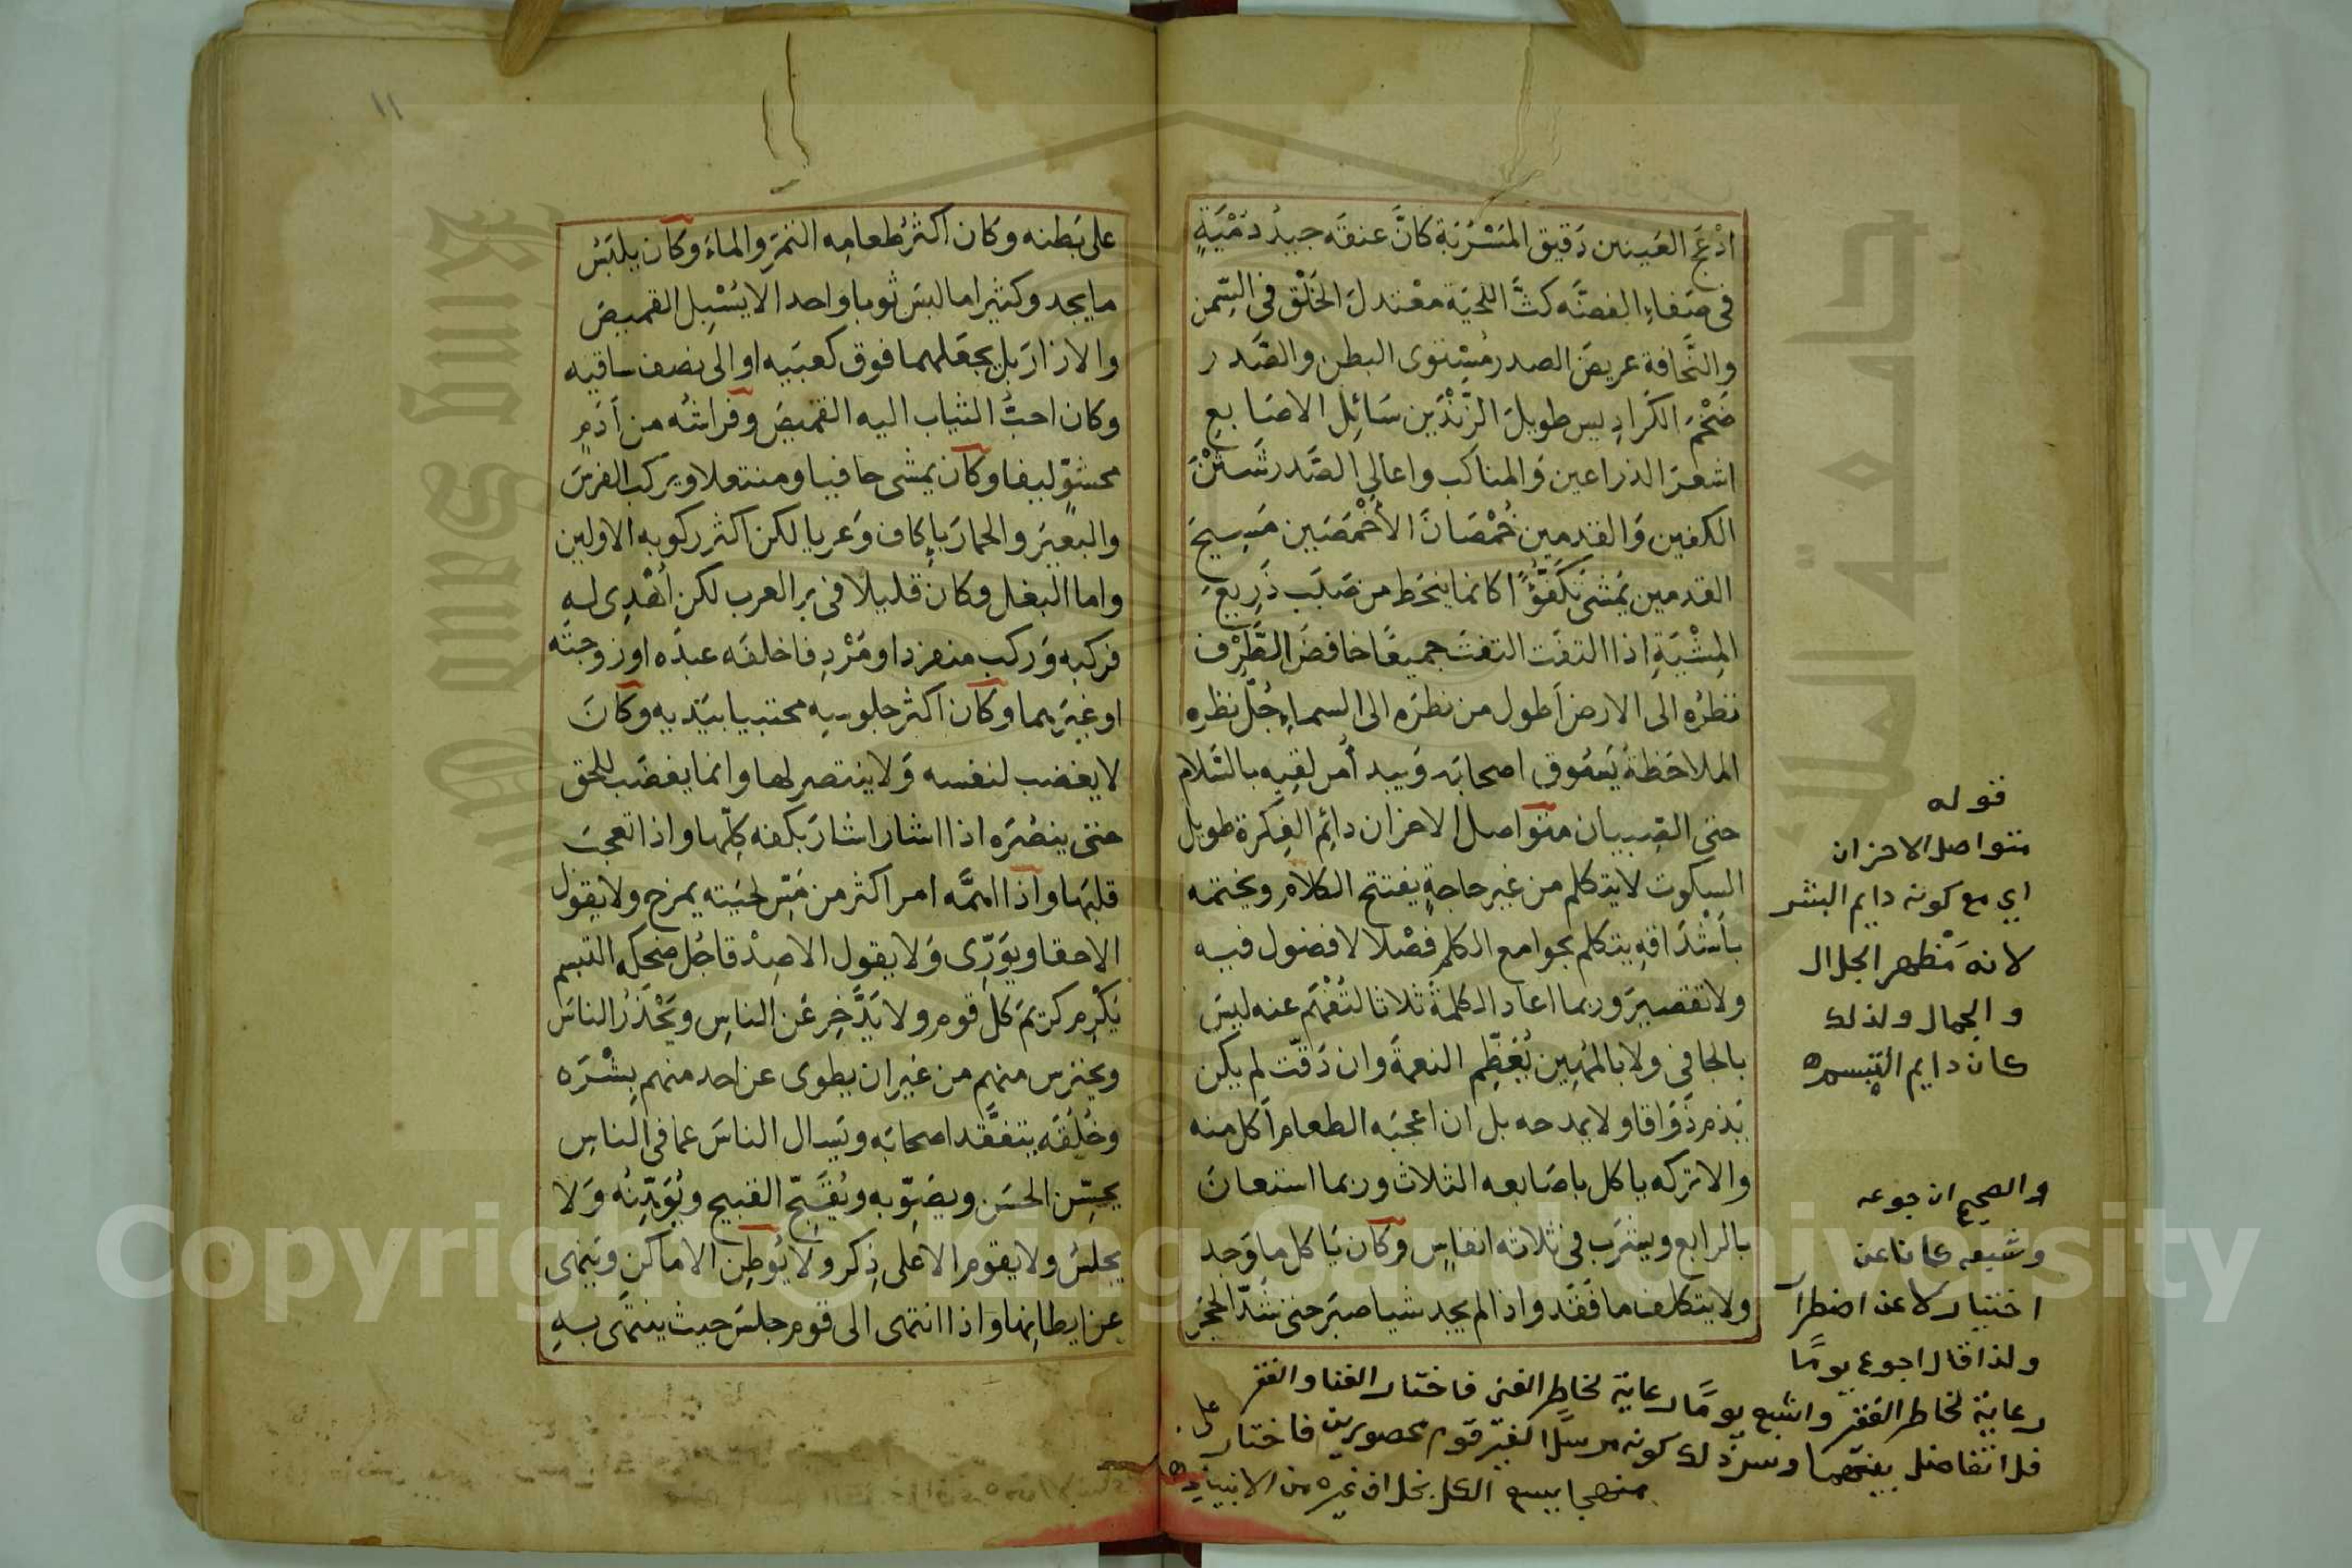 ادْعَجَ العَينين دَقيق المَسْرُبَة كانَّ عنقه جيدُ دُمْيَةٍ
فى صَفاءِ الفضَّه كثَّ اللحيَة معْتدلَ الخَلْق فى السِّمن
والنَّحافة عريضَ الصدر مُسْتوى البطن والصَّدر
ضَخْمَ الكَرادِيس طويلَ الزَّنْدَين سَائِلَ الاصَابع
اشعرَ الذراعين وَالمناكب واعالِى الصَّدر شَثْنَ
الكفين وَالقدمين خُمْصَانَ الأَخْمَصَين مَسِيحَ
القدمين يَمشى تَكَفُّؤًا كانما ينحَط من صَبَب ذَرِيعَ
المِشْيَةِ اذا التفَت التفتَ جميعًا خافضَ الطَّرْف
نظرُه الى الارض اَطول من نظرَه الى السماءِ جُلّ نظره
الملاحَظة يَسُوق اصحابَه وَيبدأ من لقِيه بالسَّلام
حتى الصِبيان متوَاصل الاحزان دائِم الفِكرة طويل
السكوت لا يتكلم من غير حاجةٍ يفتتح الكلام ويختمه
بأشْدَاقِه يتكلم بجوامع الكلم فصْلا لا فضول فيه
ولا تقصيرَ وربما اعاد الكلمة ثلاثا لتُفْهَم عنه ليسَ
بالجافى ولا بالمهِين يُعَظِّم النعمةَ وان دَقّت لم يكن
يَذم ذَوَاقا ولا يمدحه بل ان اعجبَه الطعام أكل منه
والا تركه ياكل باصَابعه الثلاث وربما استعانَ
بالرابع ويشرَب فى ثلاثه انفاسٍ وكان يَاكل ما وَجد
ولا يتكلف ما فَقَد واذا لم يجد شيا صبَر حتى شَدّ الحجَر
قوله
متواصل الاحزان
اي مع كونه دايم البشر
لانه مَظهر الجلال
والجمال ولذلك
كان دايم التبسم
والصحيح ان جوعه
وشبعه كانا عن
اختيار لا عن اضطرار
ولذا قال اجوع يومًا
رعاية لخاطر الفقر واشبع يومًا رعاية لخاطر الغنى فاختار الغنا والفقر
فلا تفاضل بينهما وسر ذلك كونه مرسلا لغير قوم محصورين فاختار
منهجا يسع الكل بخلاف غيره من الانبياء
١١
على بَطنه وكان اكثرُ طعامِه التمرَ والماءَ وكان يلبَسُ
ما يجد وكثيرا ما لبسَ ثوبا واحدا لا يُسْبِل القميصَ
والازارَ بل يجعَلهما فوق كعبَيه او الى نصف ساقيه
وكان احبُّ الثياب اليه القميصَ وفراشُه من اَدَمٍ
محشوٍّ ليفا وكان يمشى حافيا ومنتعلا ويركب الفرسَ
والبعيرَ والحمارَ باِكاف وَعريا لكن اكثر ركوبه الاولين
واما البغل وكان قليلا فى بر العرب لكن اُهْدِى له
فركبه وَركب منفردا ومُرْدِفا خلفَه عبدَه او زوجتَه
او غيرَهما وكان اكثر جلوسِه محتبيا بيَديه وكانَ
لا يغضب لنفسه وَلا ينتصر لها وانما يغضَب للحق
حتى ينصُرَه اذا اشار اشارَ بكفه كلِّها واذا تعجبَ
قلبَها واذا اهمَّه امر اكثر من مَسِّ لحيَته يمزح ولا يقول
الا حقا ويوَرِّى وَلا يقول الا صِدْقا جُل ضحكِه التبسم
يُكْرِم كريمَ كلِّ قوم ولا يَدَّخِر عَن الناسِ ويَحْذَرُ الناسَ
ويحترس منهم من غَير ان يطوى عن احد منهم بِشْرَه
وخُلُقَه يتفقَّد اصحابَه ويَسال الناسَ عما فى الناسِ
يحسِّن الحسَن ويصَوِّبه ويُقَبِّح القبيح ويُوَهِّنُه وَلا
يجلسُ ولا يقوم الا على ذِكر ولا يُوطِن الاماكن ويَنهى
عن ايطانِها وَاذا انتهى الى قوم جلسَ حيث ينتهى بهِ